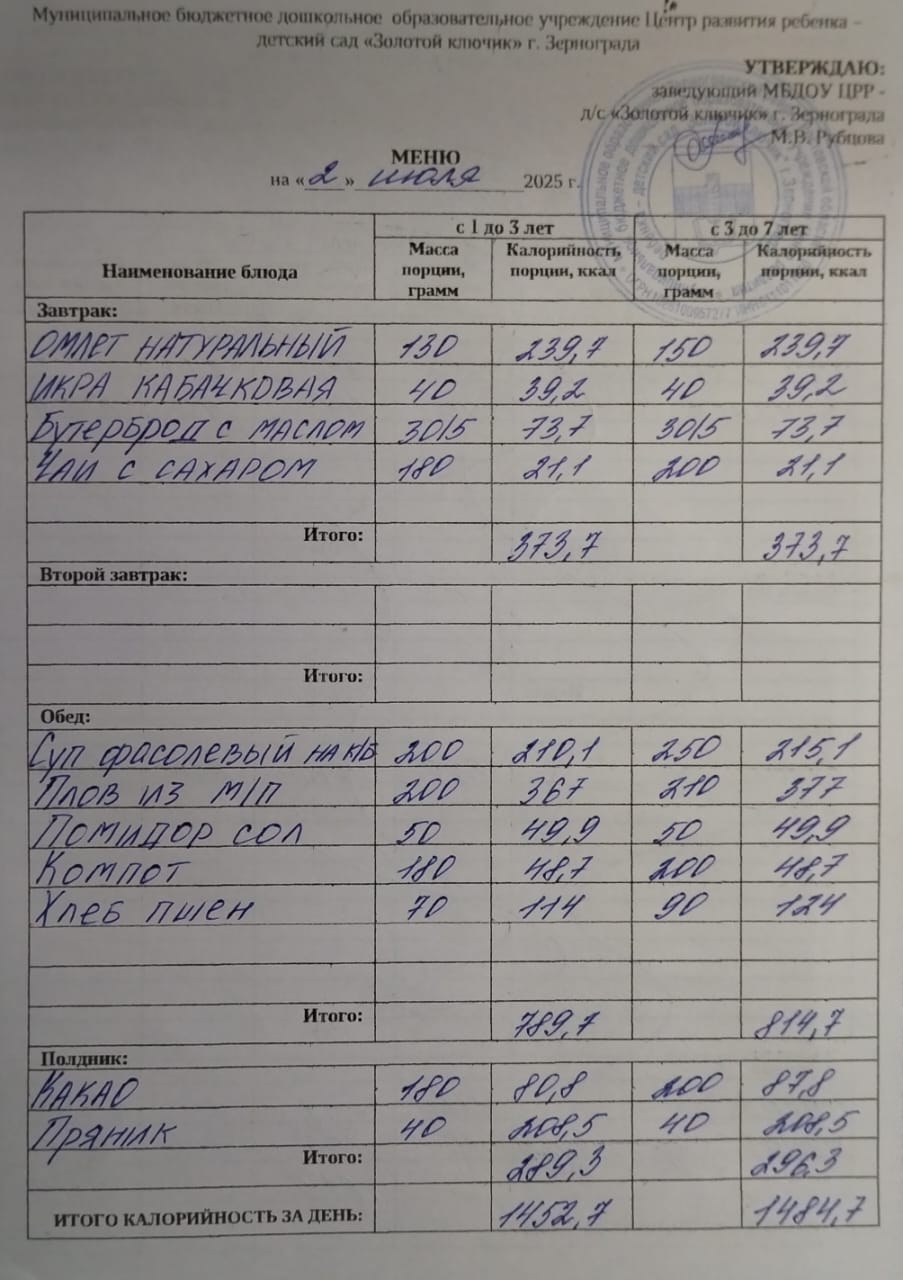 Муниципальное бюджетное дошкольное образовательное учреждение Центр развития ребенка –
детский сад «Золотой ключик» г. Зернограда
УТВЕРЖДАЮ:
заведующий МБДОУ ЦРР -
д/с «Золотой ключик» г. Зернограда
М.В. Рубцова
МЕНЮ
на «2» июля 2025 г.
Наименование блюда с 1 до 3 лет с 3 до 7 лет
Масса порции, грамм Калорийность порции, ккал Масса порции, грамм Калорийность порции, ккал
Завтрак:
ОМЛЕТ НАТУРАЛЬНЫЙ 130 239,7 150 239,7
ИКРА КАБАЧКОВАЯ 40 39,2 40 39,2
БУТЕРБРОД С МАСЛОМ 30/5 73,7 30/5 73,7
ЧАЙ С САХАРОМ 180 21,1 200 21,1
Итого: 373,7 373,7
Второй завтрак:
Итого:
Обед:
СУП ФАСОЛЕВЫЙ НА К/Б 200 210,1 250 215,1
ПЛОВ ИЗ М/П 200 367 210 377
ПОМИДОР СОЛ 50 49,9 50 49,9
КОМПОТ 180 48,7 200 48,7
ХЛЕБ ПШЕН 70 114 90 124
Итого: 789,7 814,7
Полдник:
КАКАО 180 80,8 200 87,8
ПРЯНИК 40 208,5 40 208,5
Итого: 289,3 296,3
ИТОГО КАЛОРИЙНОСТЬ ЗА ДЕНЬ: 1452,7 1484,7